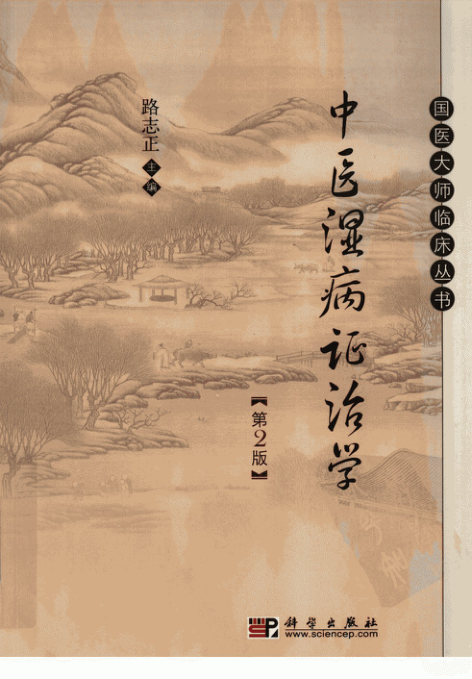 国医大师临床丛书
中医湿病证治学
【第2版】
路志正
主编
科学出版社
www.sciencep.com